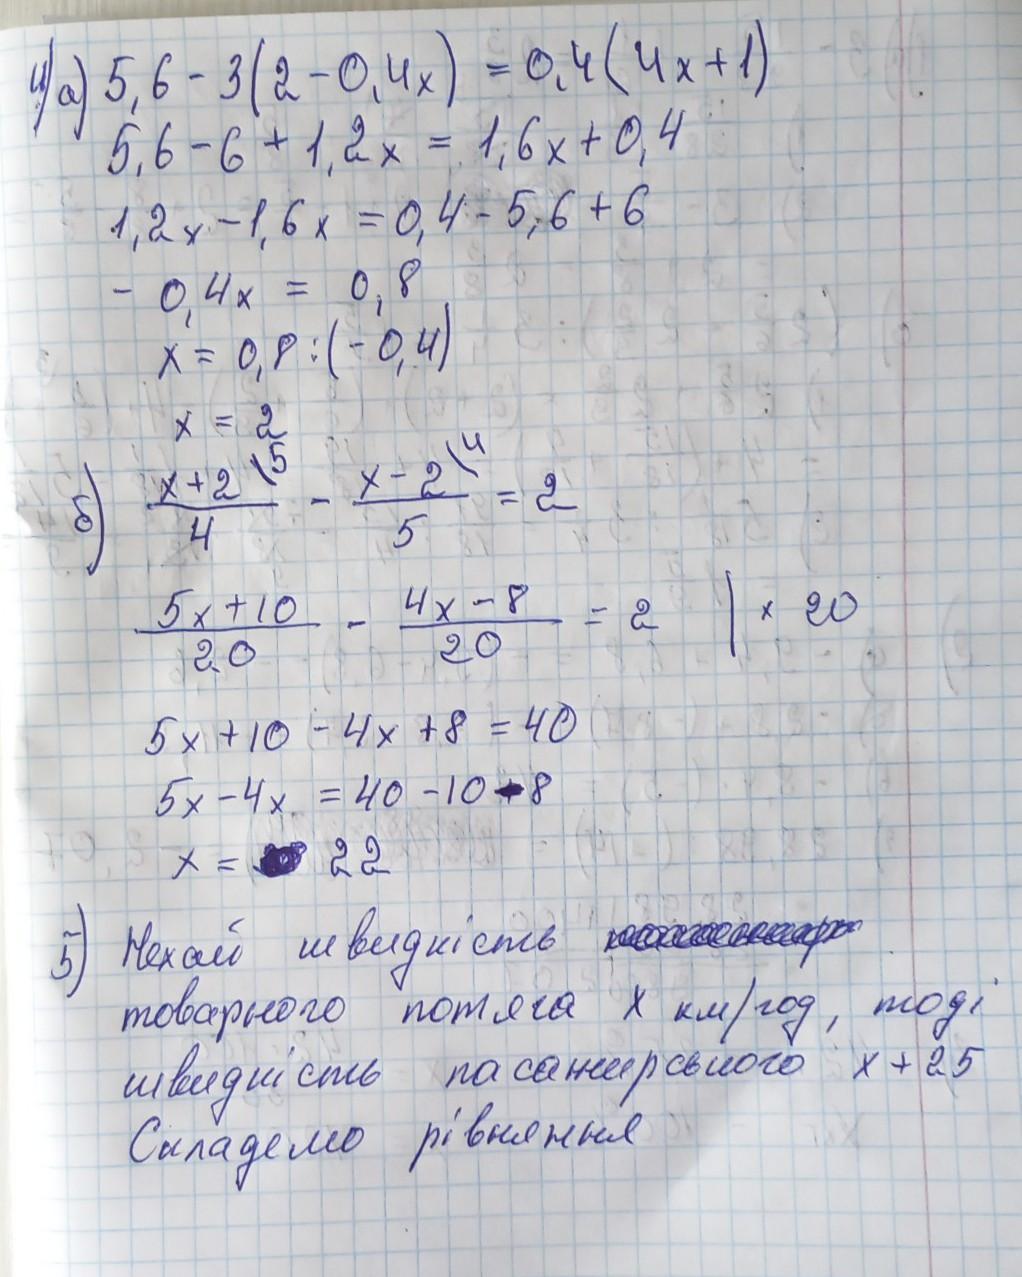 4) а) 5,6 - 3(2 - 0,4x) = 0,4(4x+1)
5,6 - 6 + 1,2x = 1,6x + 0,4
1,2x - 1,6x = 0,4 - 5,6 + 6
- 0,4x = 0,8
x = 0,8 : (-0,4)
x = 2
б) (x+2)/4 \5 - (x-2)/5 \4 = 2
(5x+10)/20 - (4x-8)/20 = 2 | × 20
5x +10 - 4x +8 = 40
5x - 4x = 40 - 10 - 8
x = 22
5) Нехай швидкість
товарного потяга x км/год, тоді
швидкість пасажирського x + 25
Складемо рівняння